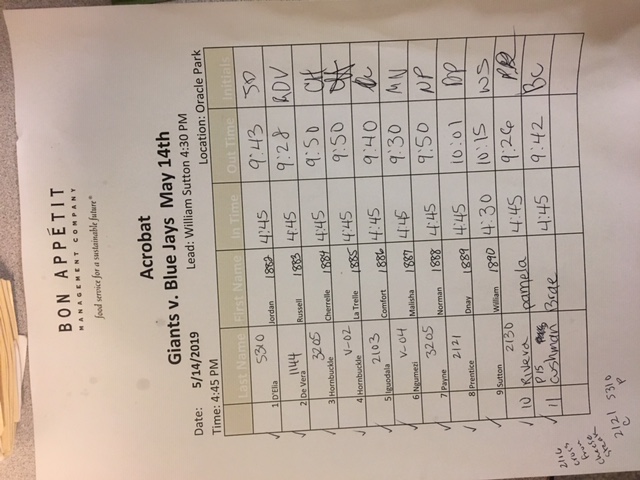 BON APPÉTIT
MANAGEMENT COMPANY
food service for a sustainable future®
Acrobat
Giants v. Blue Jays May 14th
Date: 5/14/2019 Lead: William Sutton 4:30 PM
Time: 4:45 PM Location: Oracle Park
Last Name First Name In Time Out Time Initials
1 D'Elia 5310 Jordan 1882 4:45 9:43 JD
2 De Vera 1144 Russell 1883 4:45 9:28 RDV
3 Hornbuckle 3205 Cherrelle 1884 4:45 9:50 CH
4 Hornbuckle V-02 La Trelle 1885 4:45 9:50
5 Iguodala 2103 Comfort 1886 4:45 9:40
6 Ngumezi V-04 Malisha 1887 4:45 9:30 MN
7 Payne 3205 Norman 1888 4:45 9:50 NP
8 Prentice 2121 Dnay 1889 4:45 10:01 DP
9 Sutton William 1890 4:30 10:15 WS
2130
10 Rivera pamela 4:45 9:26 PR
P15
11 Cushman Brae 4:45 9:42 BC
2116
cross
from
checker
2121 5310
C P